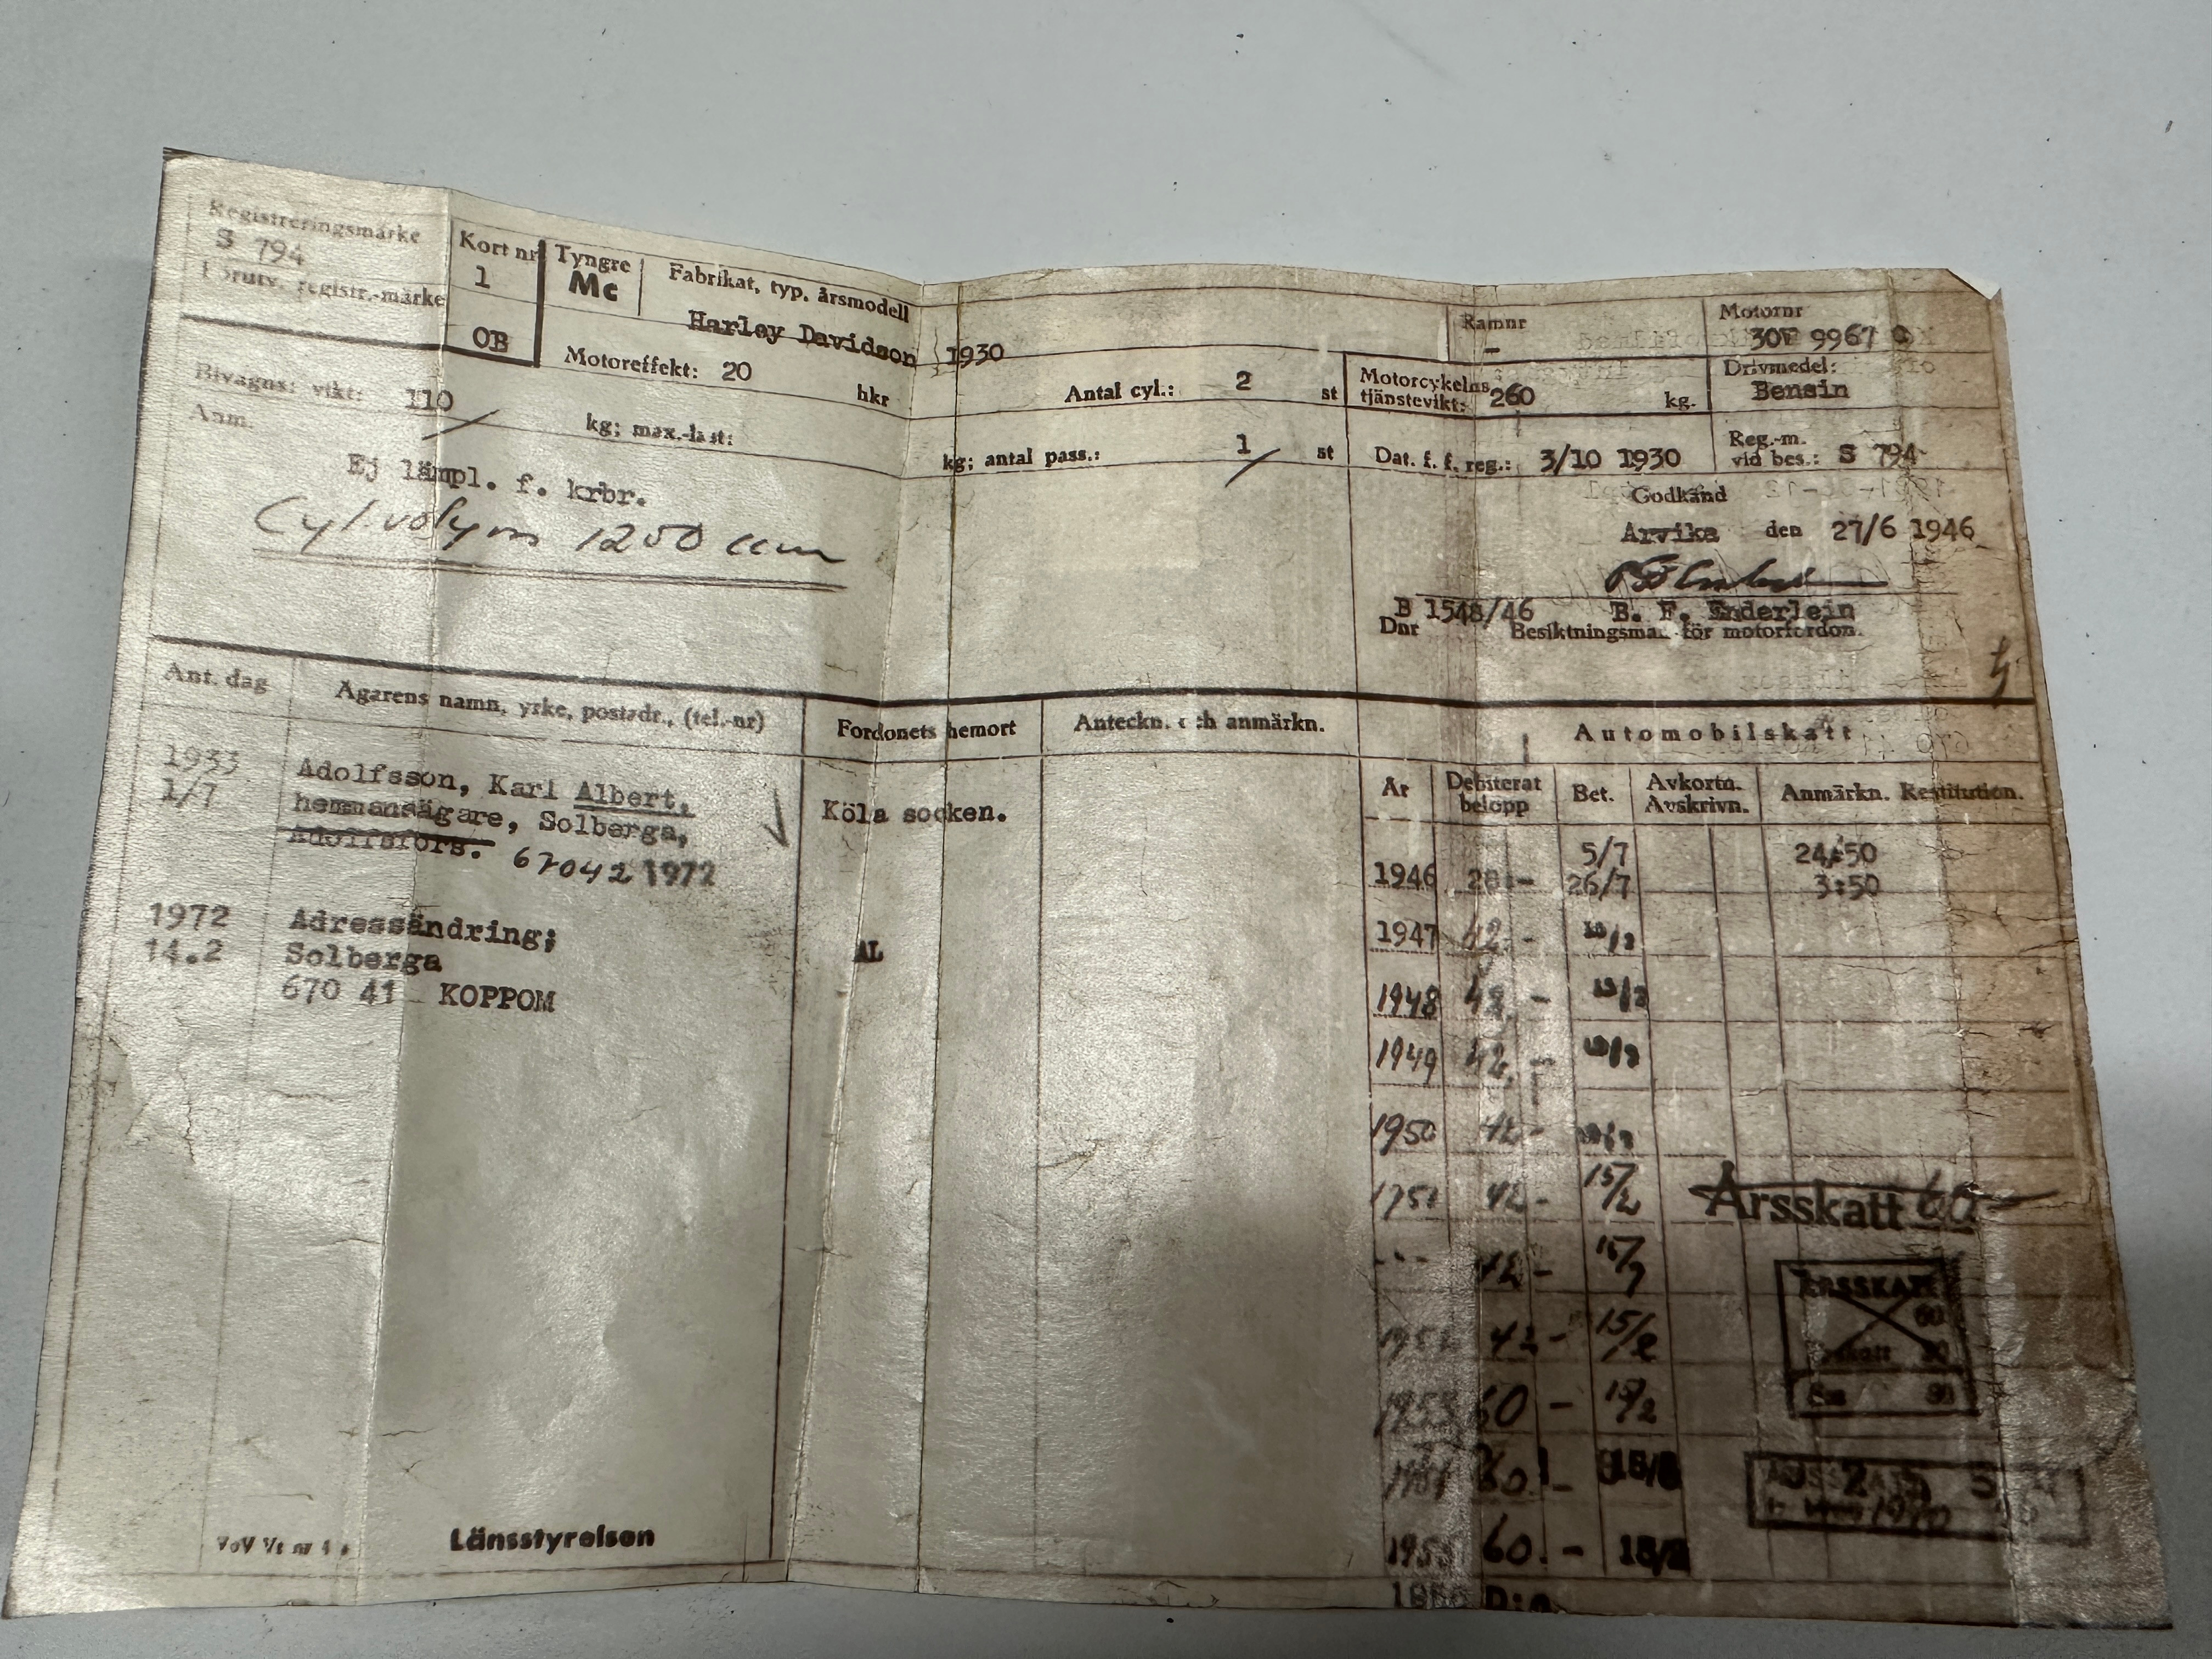 Registreringsmärke
S 794
Förutv. registr.-märke
Kort nr
1
OB
Tyngre
Mc
Fabrikat, typ, årsmodell
Harley Davidson 1930
Ramnr
-
Motornr
9967
Motoreffekt: 20 hkr
Antal cyl.: 2 st
Motorcykelns
tjänstevikt: 260 kg.
Drivmedel:
Bensin
Bivagns: vikt: 110 kg; max.-last: kg; antal pass.: 1 st
Dat. f. f. reg.: 3/10 1930
Reg.-m.
vid bes.: S 794
Anm.
Ej lämpl. f. krbr.
Cyl.volym 1250 ccm
Godkänd
Arvika den 27/6 1946
B 1548/46
Dnr
B. F. Enderlein
Besiktningsman för motorfordon.
Ant. dag
Ägarens namn, yrke, postadr., (tel.-nr)
Fordonets hemort
Anteckn. och anmärkn.
Automobilskatt
1933
1/7
Adolfsson, Karl Albert,
hemmansägare, Solberga,
Adolfsfors. 67042 1972
Köla socken.
1972
14.2
Adressändring;
Solberga
670 41 KOPPOM
AL
År
Debiterat
belopp
Bet.
Avkortn.
Avskrivn.
Anmärkn. Restitution.
1946 28:- 5/7 24:50
26/7 3:50
1947 42.-
1948 42.-
1949 42.-
1950 42-
1951 42- 15/2
42-
42- 15/2
1953 60 - 15/2
60.-
1955 60.- 15/2
Årsskatt 60-
ÅRSSKATT
60
Länsstyrelsen